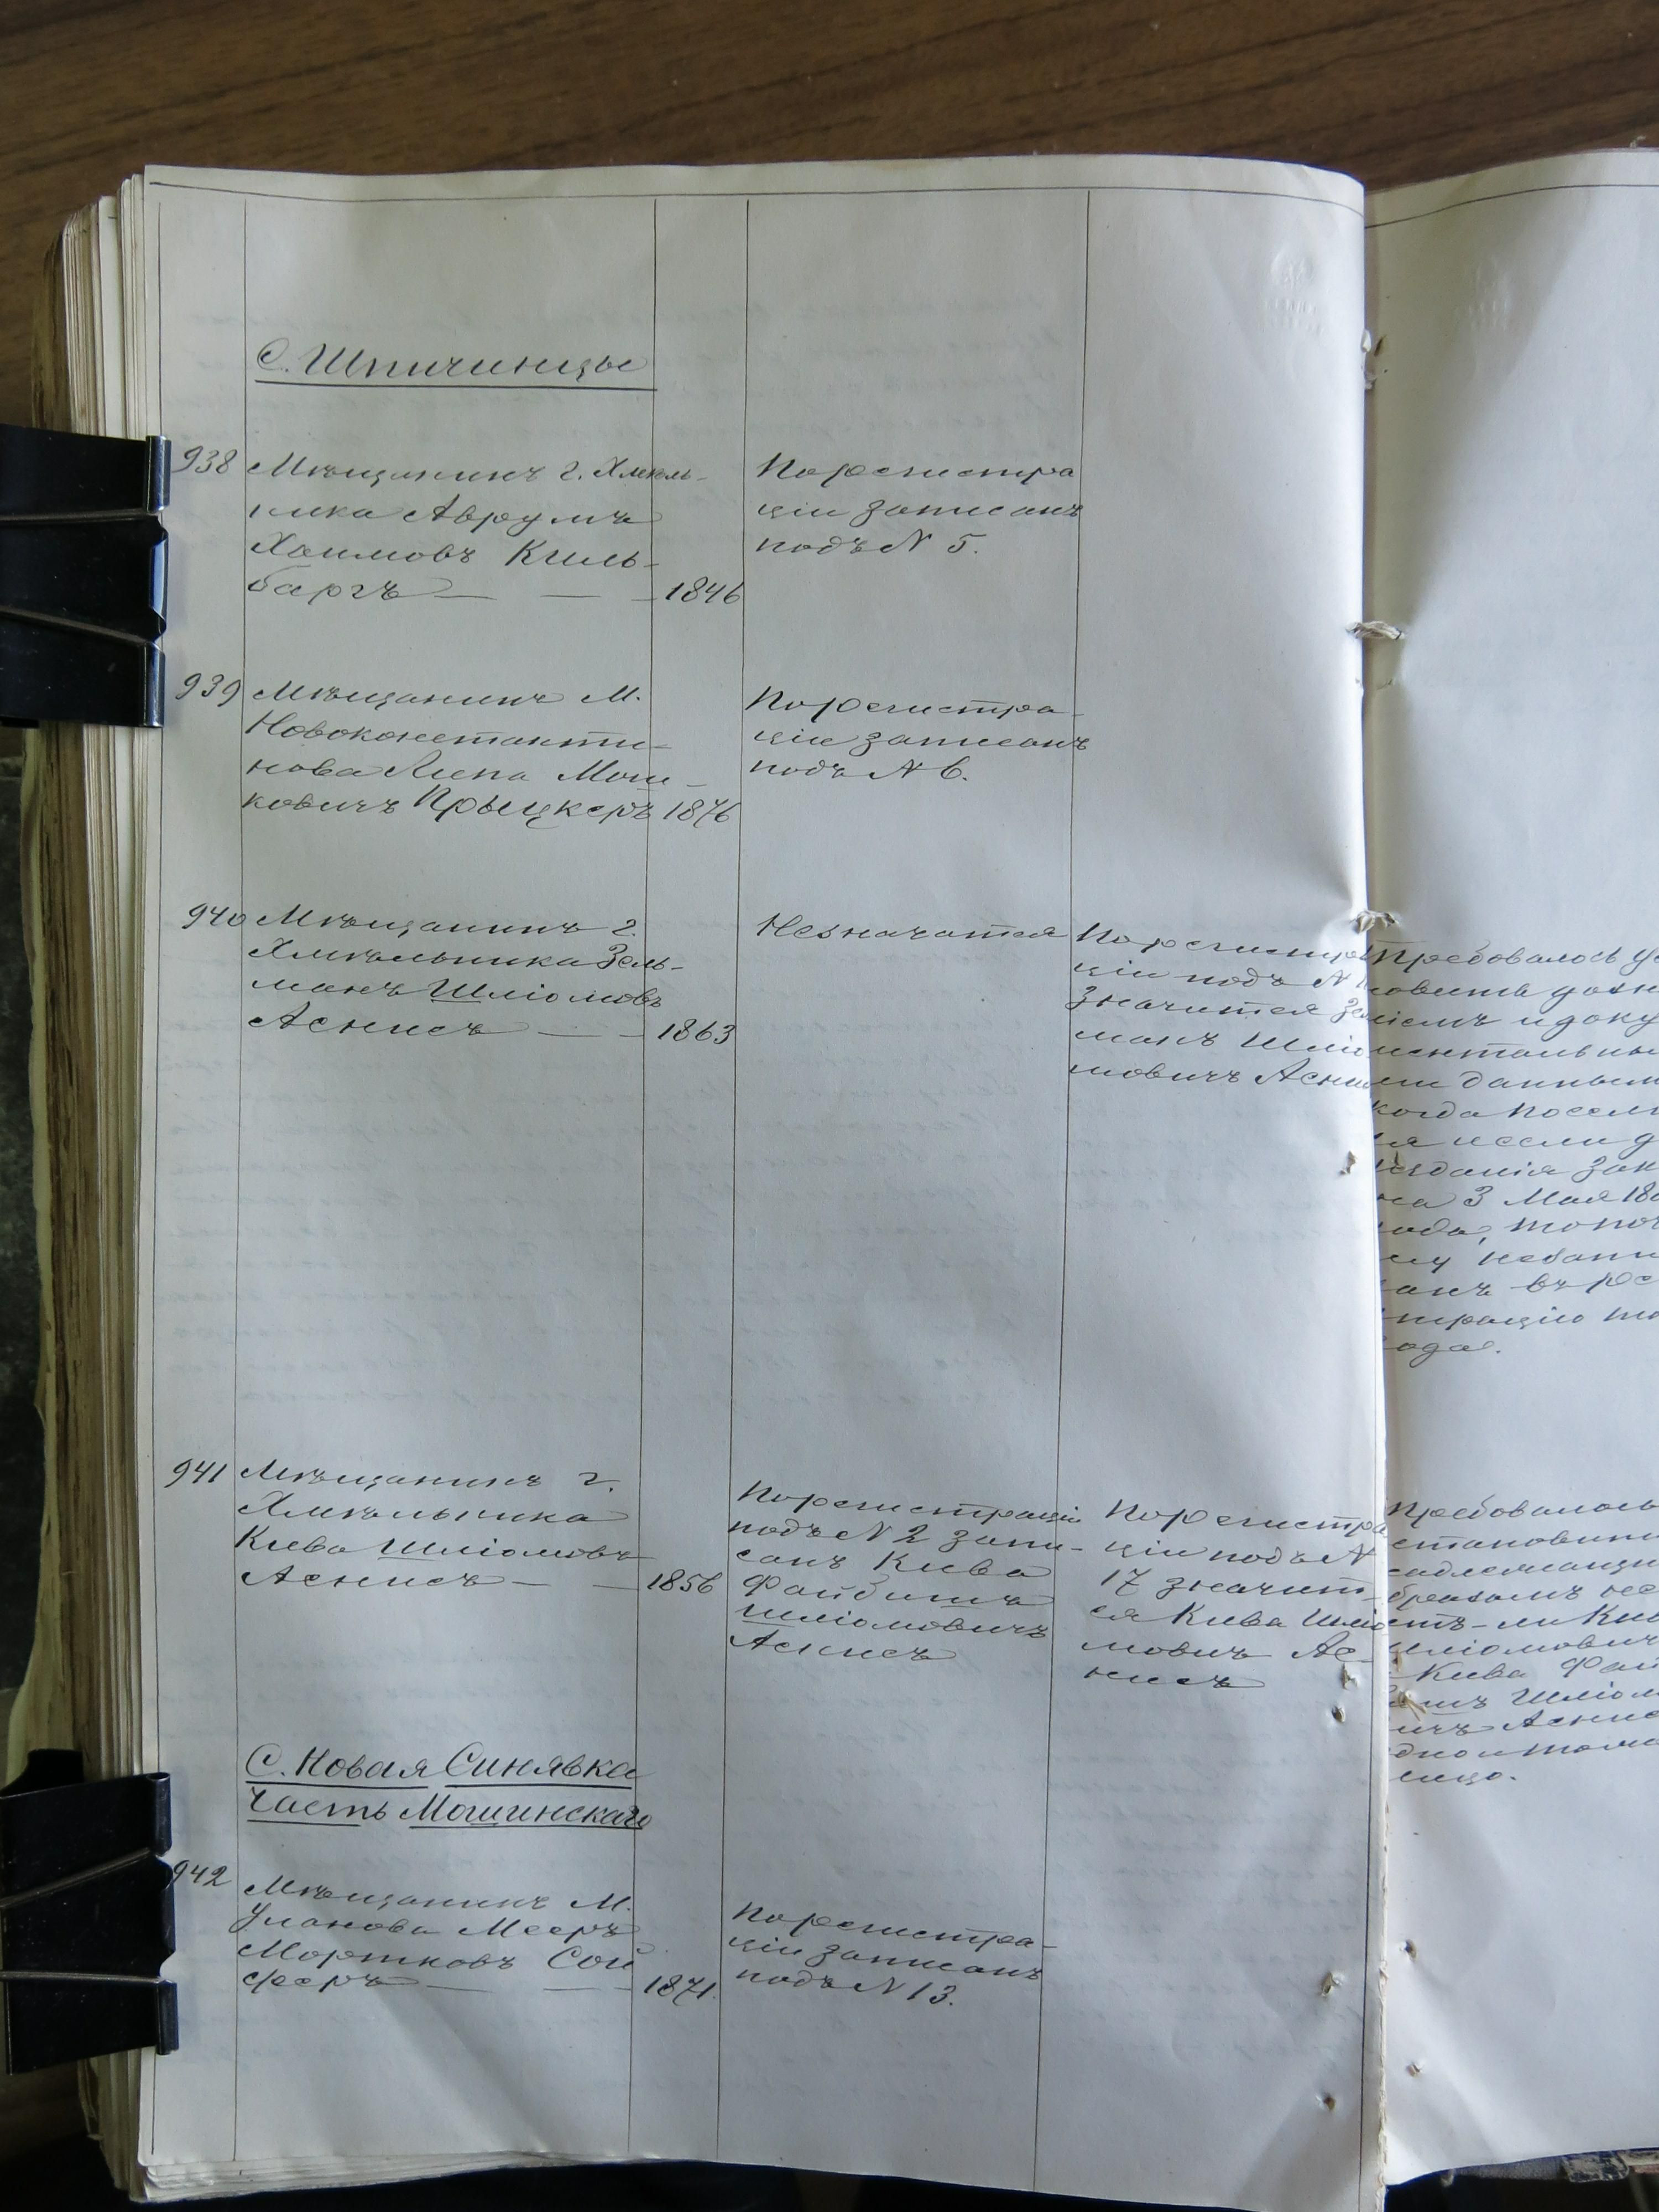 С. Шпичинцы
938
Мѣщанинъ г. Хмѣль-
ника Аврумъ
Хаимовъ Киль-
баргъ — — — 1846
По регистра
ціи записанъ
подъ № 5.
939
Мѣщанинъ М.
Новоконстанти-
нова Липа Мош-
ковичъ Прыцкеръ 1876
По регистра-
ціи записанъ
подъ № 6.
940
Мѣщанинъ г.
Хмѣльника Зель-
манъ Шліомовъ
Аснисъ — — 1863
Незначится
По регистра
ціи подъ №
значится Зе
манъ Шліо
мовичъ Асни
Требовалось у
новить дозн
ніемъ и доку
ментальны
ми данным
когда посели
ся и если д
изданія зак
на 3 Мая 18
года, то поч
му не запи
санъ въ ре
страцію то
года.
941
Мѣщанинъ г.
Хмѣльника
Кива Шліомовъ
Аснисъ — — 1856
По регистраціи
подъ № 2 запи-
санъ Кива
Файбишъ
Шліомовичъ
Аснисъ
По регистра
ціи подъ №
17 значит-
ся Кива Шліо
мовичъ Ас-
нисъ
Требовалось
становить
надлежащим
образомъ не
есть-ли Кив
Шліомович
Кива Фай
бишъ Шліом
ичъ Аснис
одно и тоже
лицо.
С. Новая Синявка
Часть Мошинскаго
942
Мѣщанинъ М.
Уланова Мееръ
Мортковъ Сой
феръ — — — 1871.
По регистра-
ціи записанъ
подъ № 13.